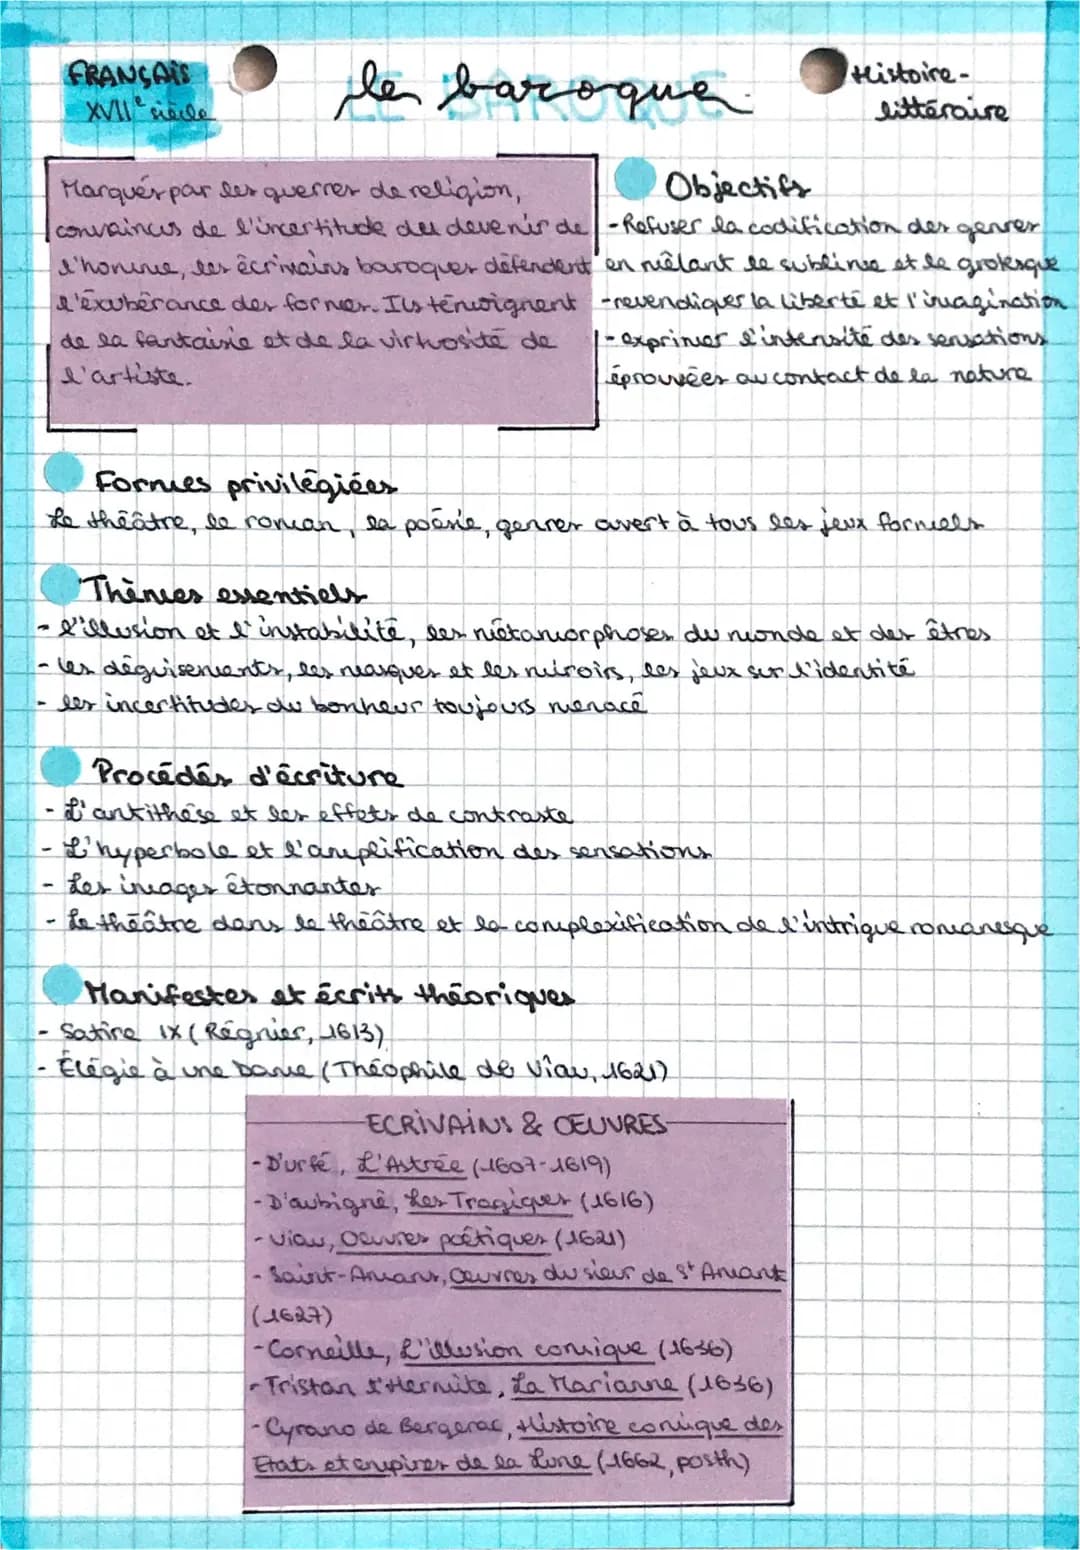 FRANÇAIS
XVIIe siècle
le baroque
LE BAROQUE
Histoire-
littéraire
Marqués par les guerres de religion,
convaincus de l'incertitude du devenir de
l'homme, les écrivains baroques défendent
l'éxubérance des formes. Ils témoignent
de la fantaisie et de la virtuosité de
l'artiste.
Objectifs
-Refuser la codification des genres
en mêlant le sublime et le grotesque
-revendiquer la liberté et l'imagination
- exprimer l'intensité des sensations
éprouvées au contact de la nature
Formes privilégiées
Le théâtre, le roman, la poésie, genres ouvert à tous les jeux formels
Thèmes essentiels
- l'illusion et l'instabilité, les métamorphoses du monde et des êtres
- les déguisements, les masques et les miroirs, les jeux sur l'identité
- les incertitudes du bonheur toujours menacé
Procédés d'écriture
- L'antithèse et les effets de contraste
- L'hyperbole et l'amplification des sensations
- Les images étonnantes
- Le théâtre dans le théâtre et la complexification de l'intrigue romanesque
Manifestes et écrits théoriques
- Satire IX (Régnier, 1613)
- Élégie à une Dame (Théophile de Viau, 1621)
ECRIVAINS & ŒUVRES
- D'urfé, L'Astrée (1607-1619)
- D'aubigné, Les Tragiques (1616)
- Viau, Oeuvres poétiques (1621)
- Saint-Amans, Œuvres du sieur de St Amant
(1627)
- Corneille, L'illusion comique (1636)
- Tristan l'Hermite, La Marianne (1636)
- Cyrano de Bergerac, Histoire comique des
Etats et empires de la Lune (1662, posth)